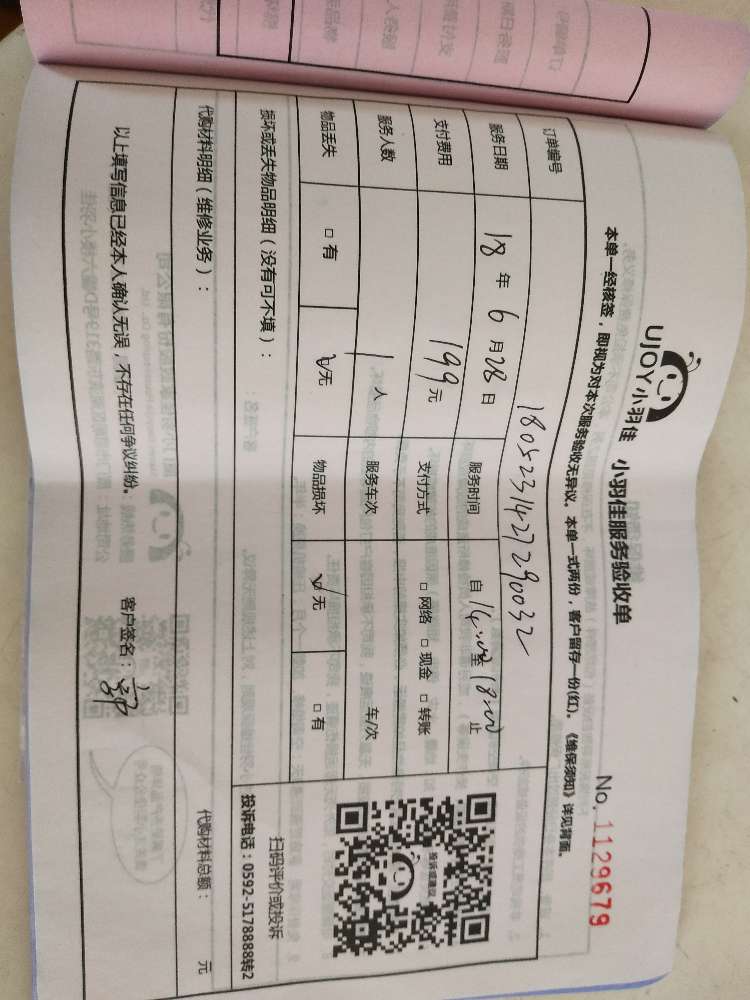 UJOY小羽佳 小羽佳服务验收单
No. 1129679
本单一经核签，即视为对本次服务验收无异议。本单一式两份，客户留存一份(红)。《维保须知》详见背面。
订单编号 1805231427290032
服务日期 18年6月28日 服务时间 自14:00至18:00止
支付费用 199元 支付方式 □网络 □现金 □转账
服务人数 1人 服务车次 车/次
物品丢失 □有 ☑无 物品损坏 ☑无 □有
投诉或建议
扫码评价或投诉
投诉电话：0592-5178888转2
损坏或丢失物品明细（没有可不填）：
代购材料明细（维修业务）：
代购材料总额： 元
以上填写信息已经本人确认无误，不存在任何争议纠纷。 客户签名：